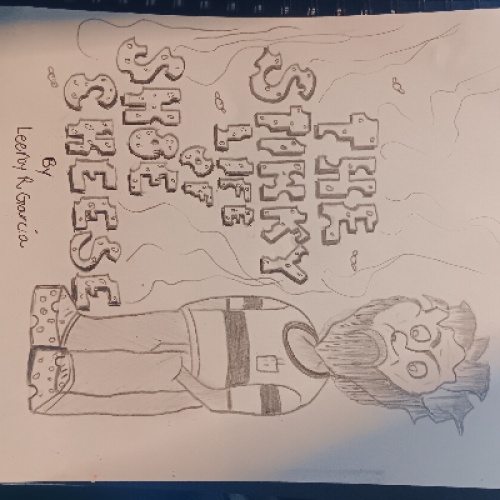 THE
STINKY
LIFE
OF
SHOE
SHEESE
By
Leeroy R. Garcia